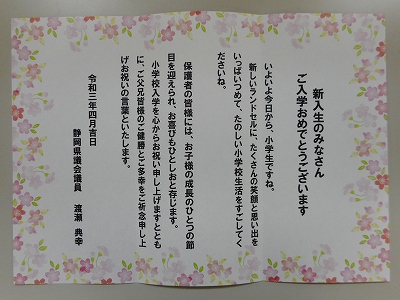 新入生のみなさん
ご入学おめでとうございます
いよいよ今日から、小学生ですね。
新しいランドセルに、たくさんの笑顔と思い出を
いっぱいつめて、たのしい小学校生活をすごしてく
ださいね。
保護者の皆様には、お子様の成長のひとつの節
目を迎えられ、お喜びもひとしおと存じます。
小学校入学を心からお祝い申し上げますととも
に、ご父兄皆様のご健勝とご多幸をご祈念申し上
げお祝いの言葉といたします。
令和三年四月吉日
静岡県議会議員 渡瀬 典幸